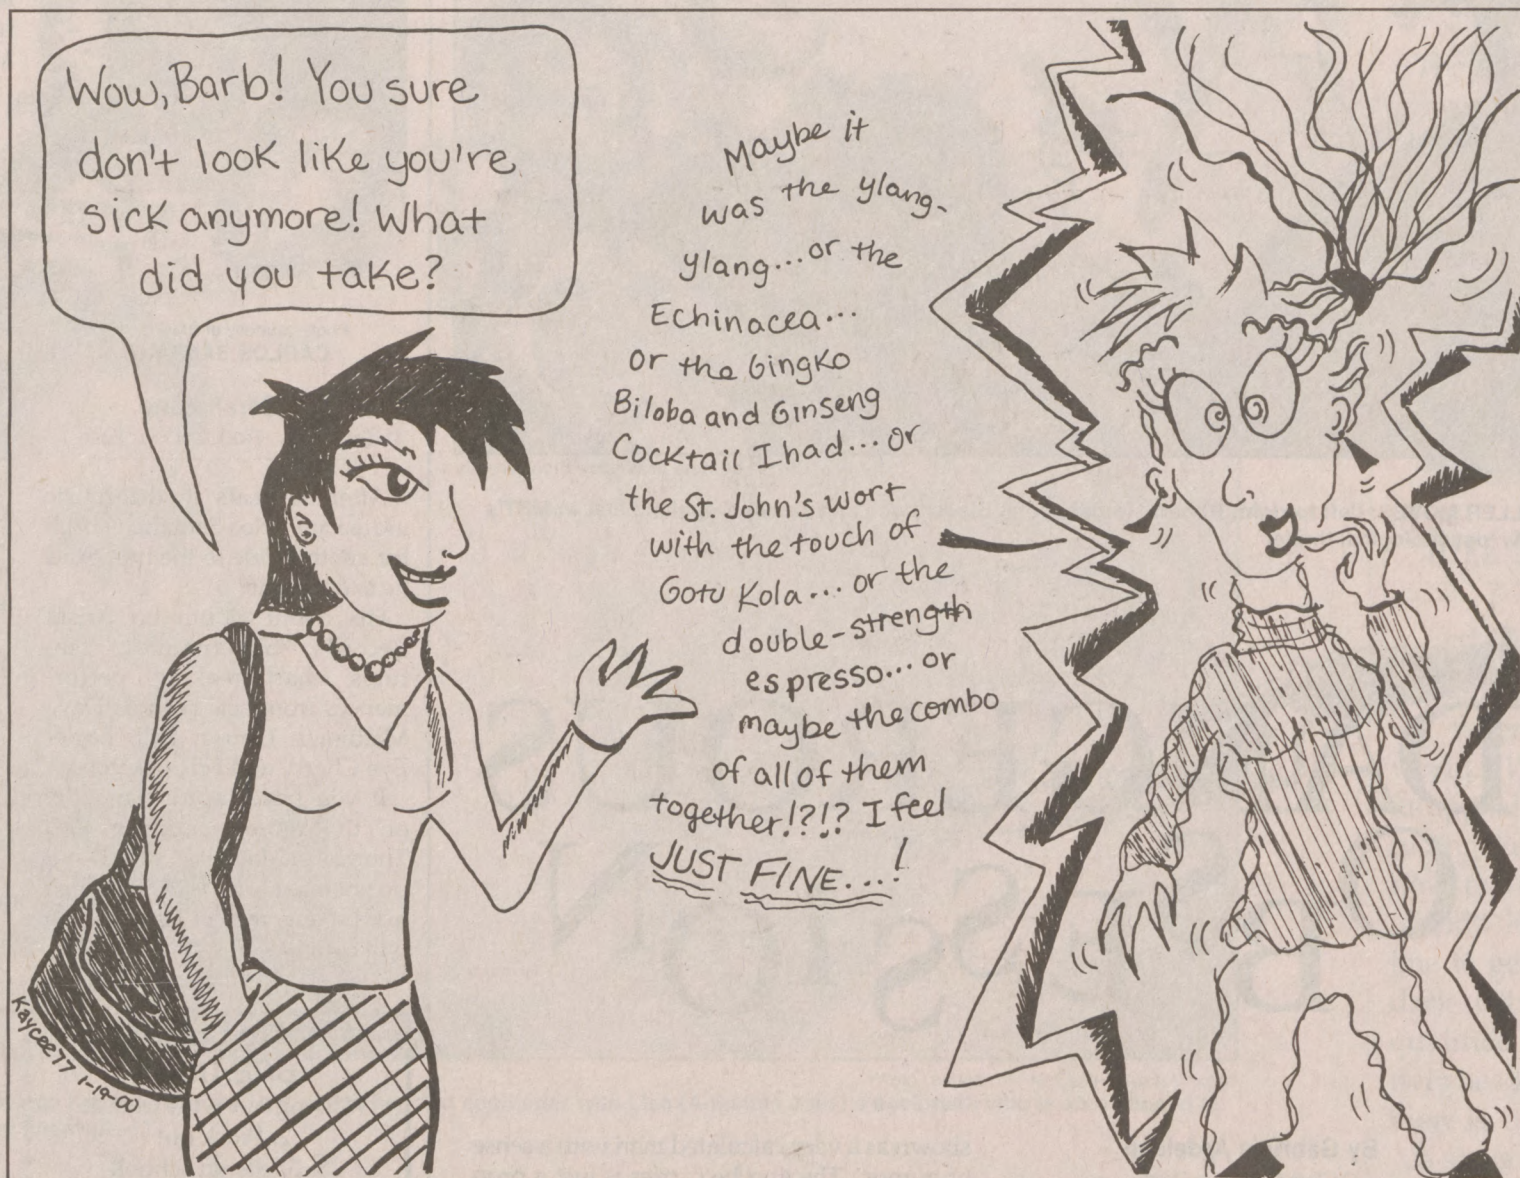 Wow, Barb! You sure
don't look like you're
sick anymore! What
did you take?
Maybe it
was the ylang-
ylang...or the
Echinacea...
or the Gingko
Biloba and Ginseng
Cocktail I had... or
the St. John's wort
with the touch of
Gotu Kola... or the
double-strength
espresso... or
maybe the combo
of all of them
together!?!? I feel
JUST FINE...!
Kaycee77 1-19-00